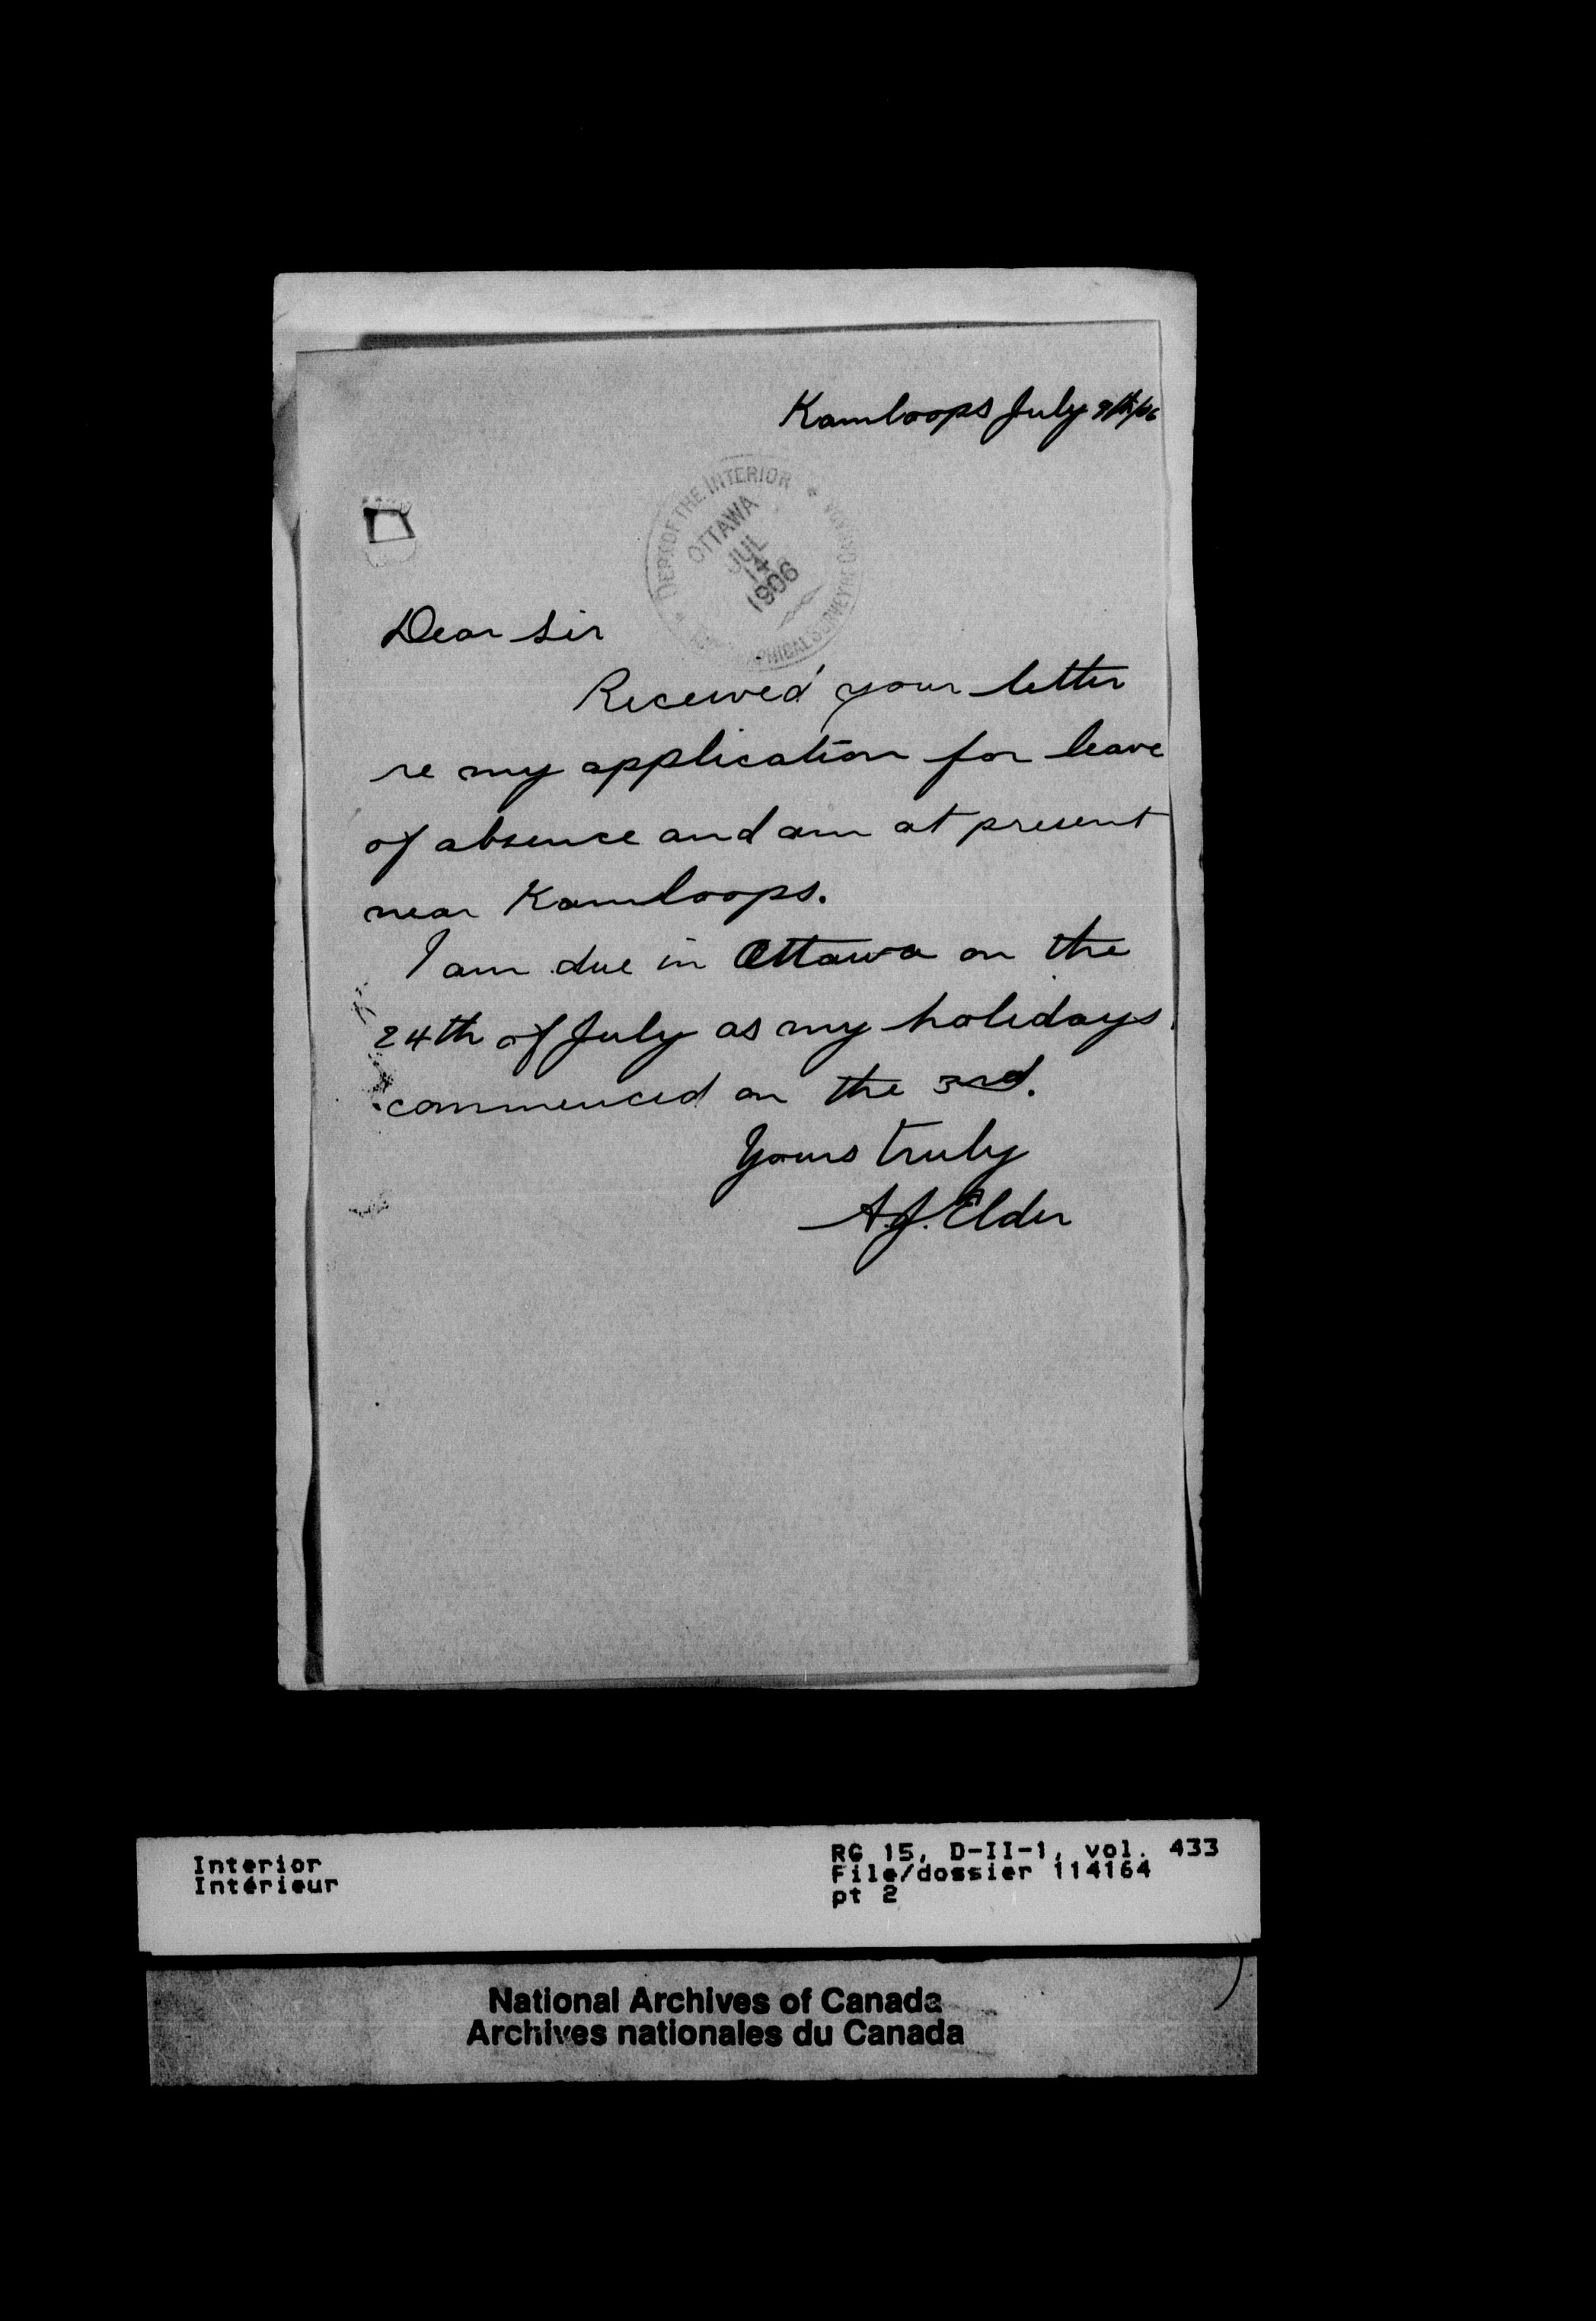 Kamloops July 9th/06
DEPT OF THE INTERIOR
OTTAWA
JUL
14
1906
SURVEYS
CANADA
Dear Sir
Received your letter
re my application for leave
of absence and am at present
near Kamloops.
I am due in Ottawa on the
24th of July as my holidays
commenced on the 3rd.
Yours truly
A.J. Elder
Interior
Intérieur
RG 15, D-II-1, vol. 433
File/dossier 114164
pt 2
National Archives of Canada
Archives nationales du Canada